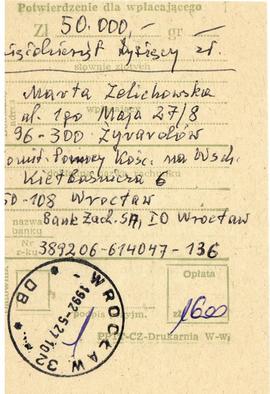 Potwierdzenie dla wpłacającego
Zł 50.000,- gr
tysięcy zł.
słownie złotych
Marta Zelichowska
wpłacający
ul. 1go Maja 27/8
96-300 Żyrardów
Pomocy Kośc. na Wsch.
6
50-108 Wrocław
Bank Zach. SA, IO Wrocław
nazwa
banku
Nr
r-ku 389206-614047-136
Opłata
zł 1600
podpis przyjm.
PPTT-CZ-Drukarnia W-w
WROCŁAW 32
1992-5.27.10
DB